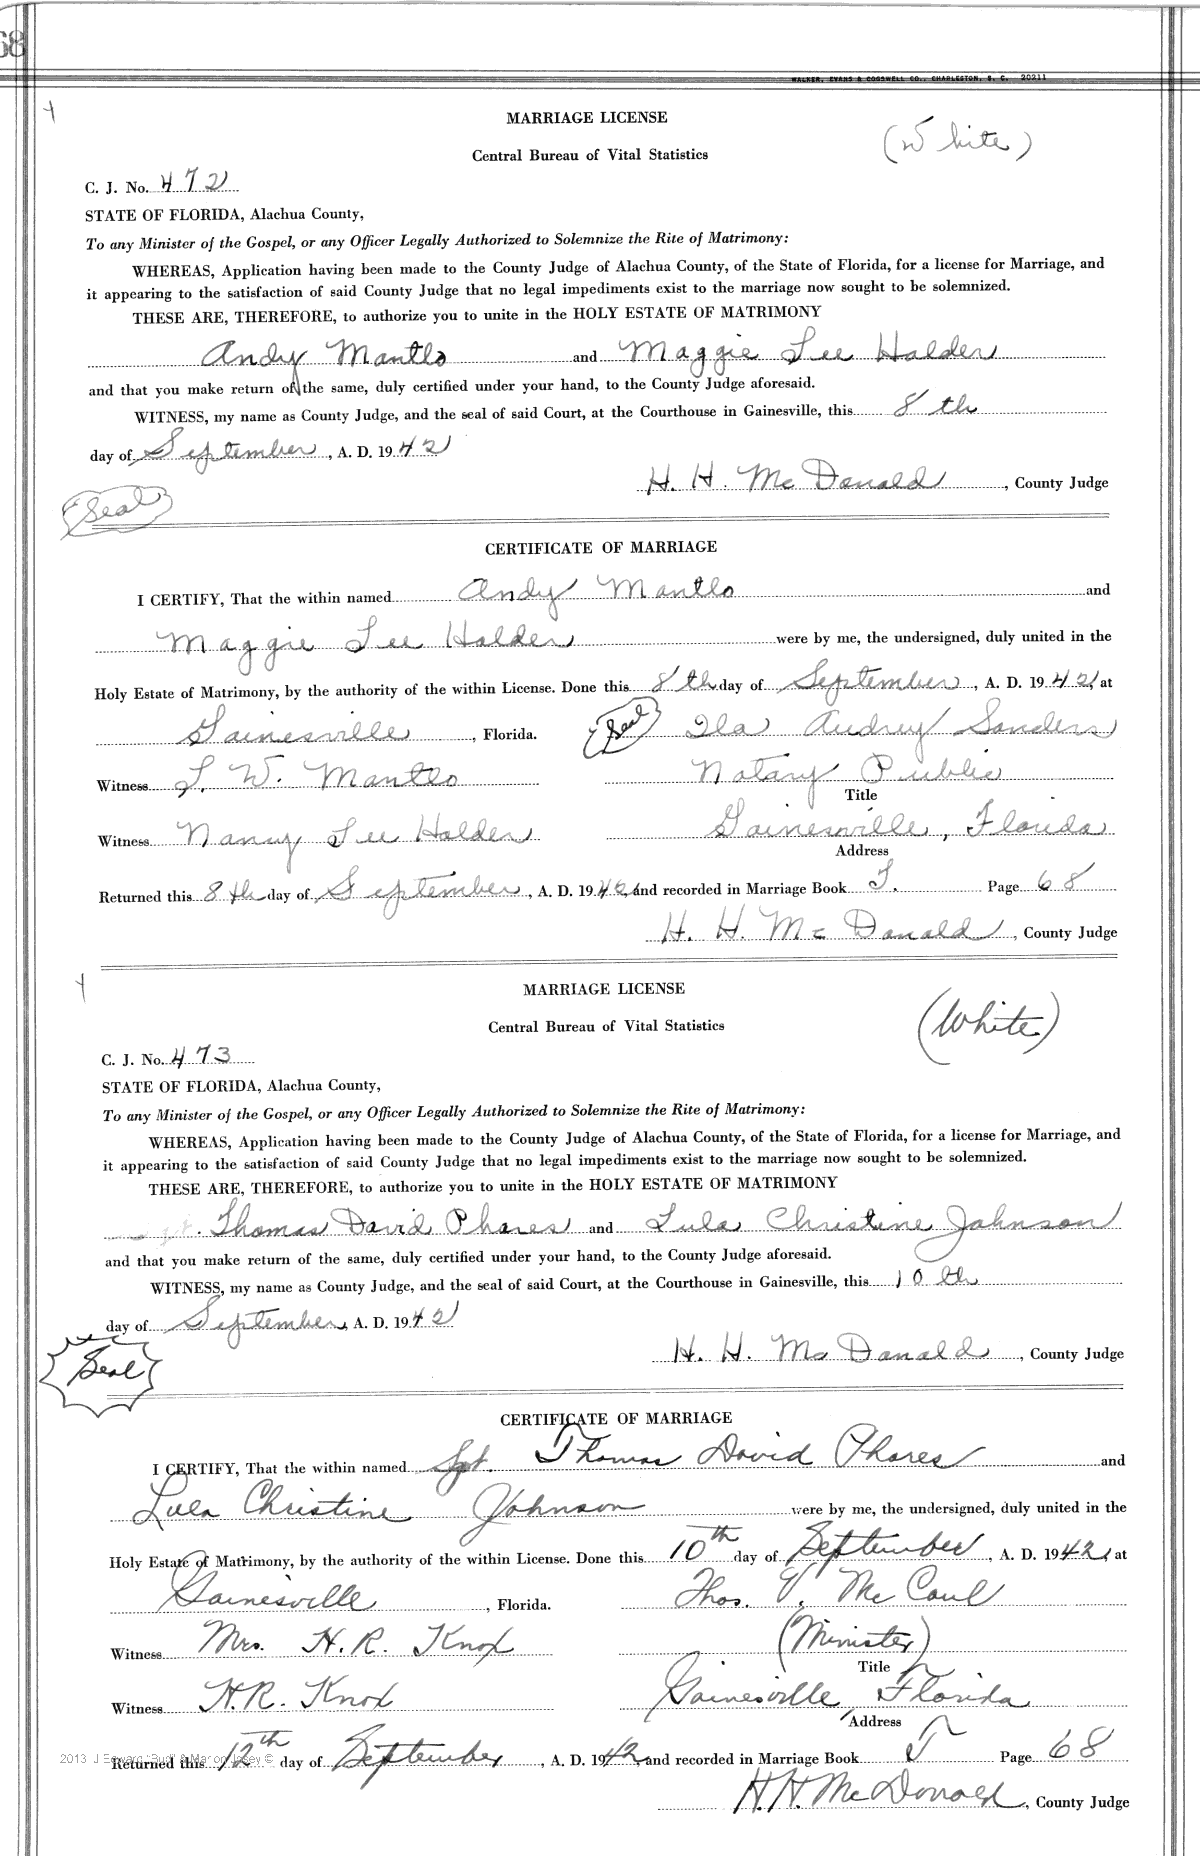 68
WALKER, EVANS & COGSWELL CO., CHARLESTON, S. C. 20211
MARRIAGE LICENSE
(White)
Central Bureau of Vital Statistics
C. J. No. 472
STATE OF FLORIDA, Alachua County,
To any Minister of the Gospel, or any Officer Legally Authorized to Solemnize the Rite of Matrimony:
WHEREAS, Application having been made to the County Judge of Alachua County, of the State of Florida, for a license for Marriage, and
it appearing to the satisfaction of said County Judge that no legal impediments exist to the marriage now sought to be solemnized.
THESE ARE, THEREFORE, to authorize you to unite in the HOLY ESTATE OF MATRIMONY
Andy Mantlo and Maggie Lee Holder
and that you make return of the same, duly certified under your hand, to the County Judge aforesaid.
WITNESS, my name as County Judge, and the seal of said Court, at the Courthouse in Gainesville, this 8th
day of September, A. D. 1942
H. H. McDonald, County Judge
(Seal)
CERTIFICATE OF MARRIAGE
I CERTIFY, That the within named Andy Mantlo and
Maggie Lee Holder were by me, the undersigned, duly united in the
Holy Estate of Matrimony, by the authority of the within License. Done this 8th day of September, A. D. 1942, at
Gainesville, Florida. (Seal) Ila Audrey Sanders
Witness T. W. Mantlo Notary Public
Title
Witness Nancy Lee Holder Gainesville, Florida
Address
Returned this 8th day of September, A. D. 1942, and recorded in Marriage Book T. Page 68
H. H. McDonald, County Judge
MARRIAGE LICENSE
(White)
Central Bureau of Vital Statistics
C. J. No. 473
STATE OF FLORIDA, Alachua County,
To any Minister of the Gospel, or any Officer Legally Authorized to Solemnize the Rite of Matrimony:
WHEREAS, Application having been made to the County Judge of Alachua County, of the State of Florida, for a license for Marriage, and
it appearing to the satisfaction of said County Judge that no legal impediments exist to the marriage now sought to be solemnized.
THESE ARE, THEREFORE, to authorize you to unite in the HOLY ESTATE OF MATRIMONY
Sgt. Thomas David Phares and Lula Christine Johnson
and that you make return of the same, duly certified under your hand, to the County Judge aforesaid.
WITNESS, my name as County Judge, and the seal of said Court, at the Courthouse in Gainesville, this 10th
day of September, A. D. 1942
H. H. McDonald, County Judge
Seal
CERTIFICATE OF MARRIAGE
I CERTIFY, That the within named Sgt. Thomas David Phares and
Lula Christine Johnson were by me, the undersigned, duly united in the
Holy Estate of Matrimony, by the authority of the within License. Done this 10th day of September, A. D. 1942, at
Gainesville, Florida. Thos. V. McCaul
Witness Mrs. H. R. Knox (Minister)
Title
Witness H. R. Knox Gainesville, Florida
Address
2013 J Edward "Bud" & Marion Josey ©
Returned this 12th day of September, A. D. 1942, and recorded in Marriage Book T Page 68
H. H. McDonald, County Judge